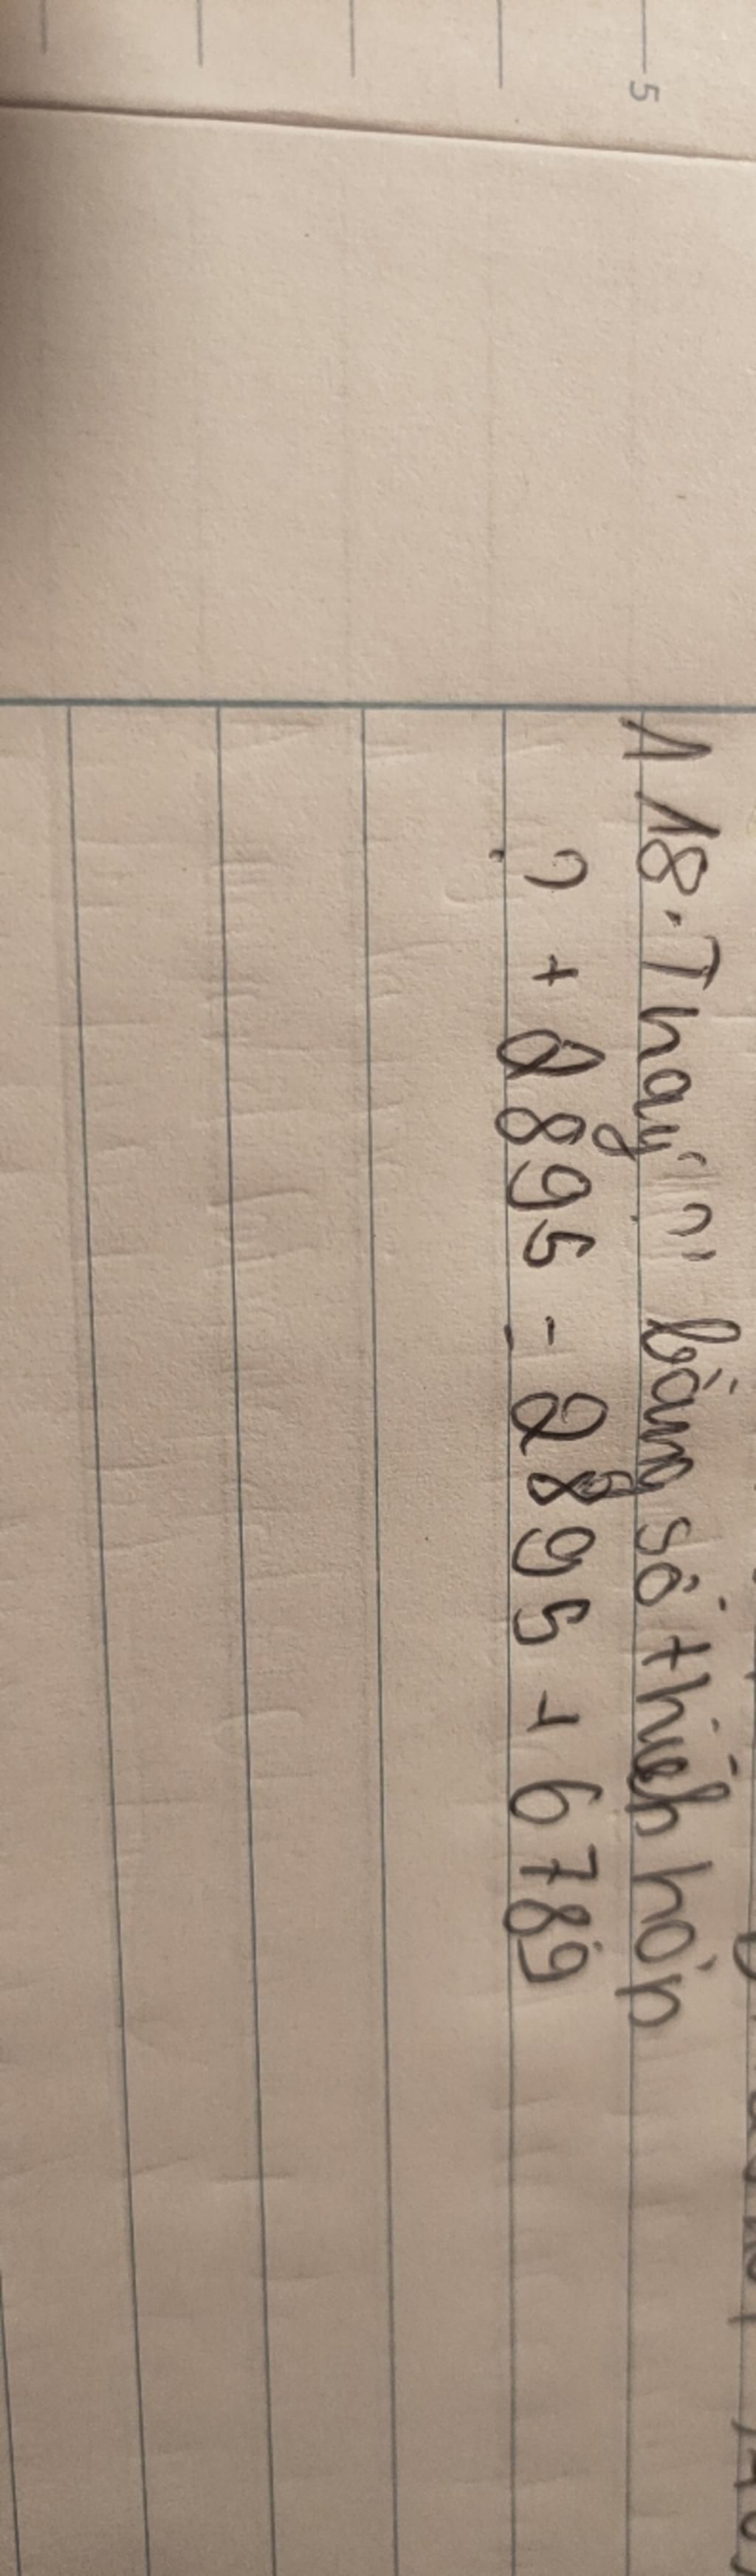 5
1.18. Thay "?" bằng số thích hợp
? + 2895 = 2895 + 6789